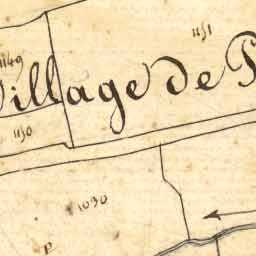 1151
1149
Village de P
1150
1090
P